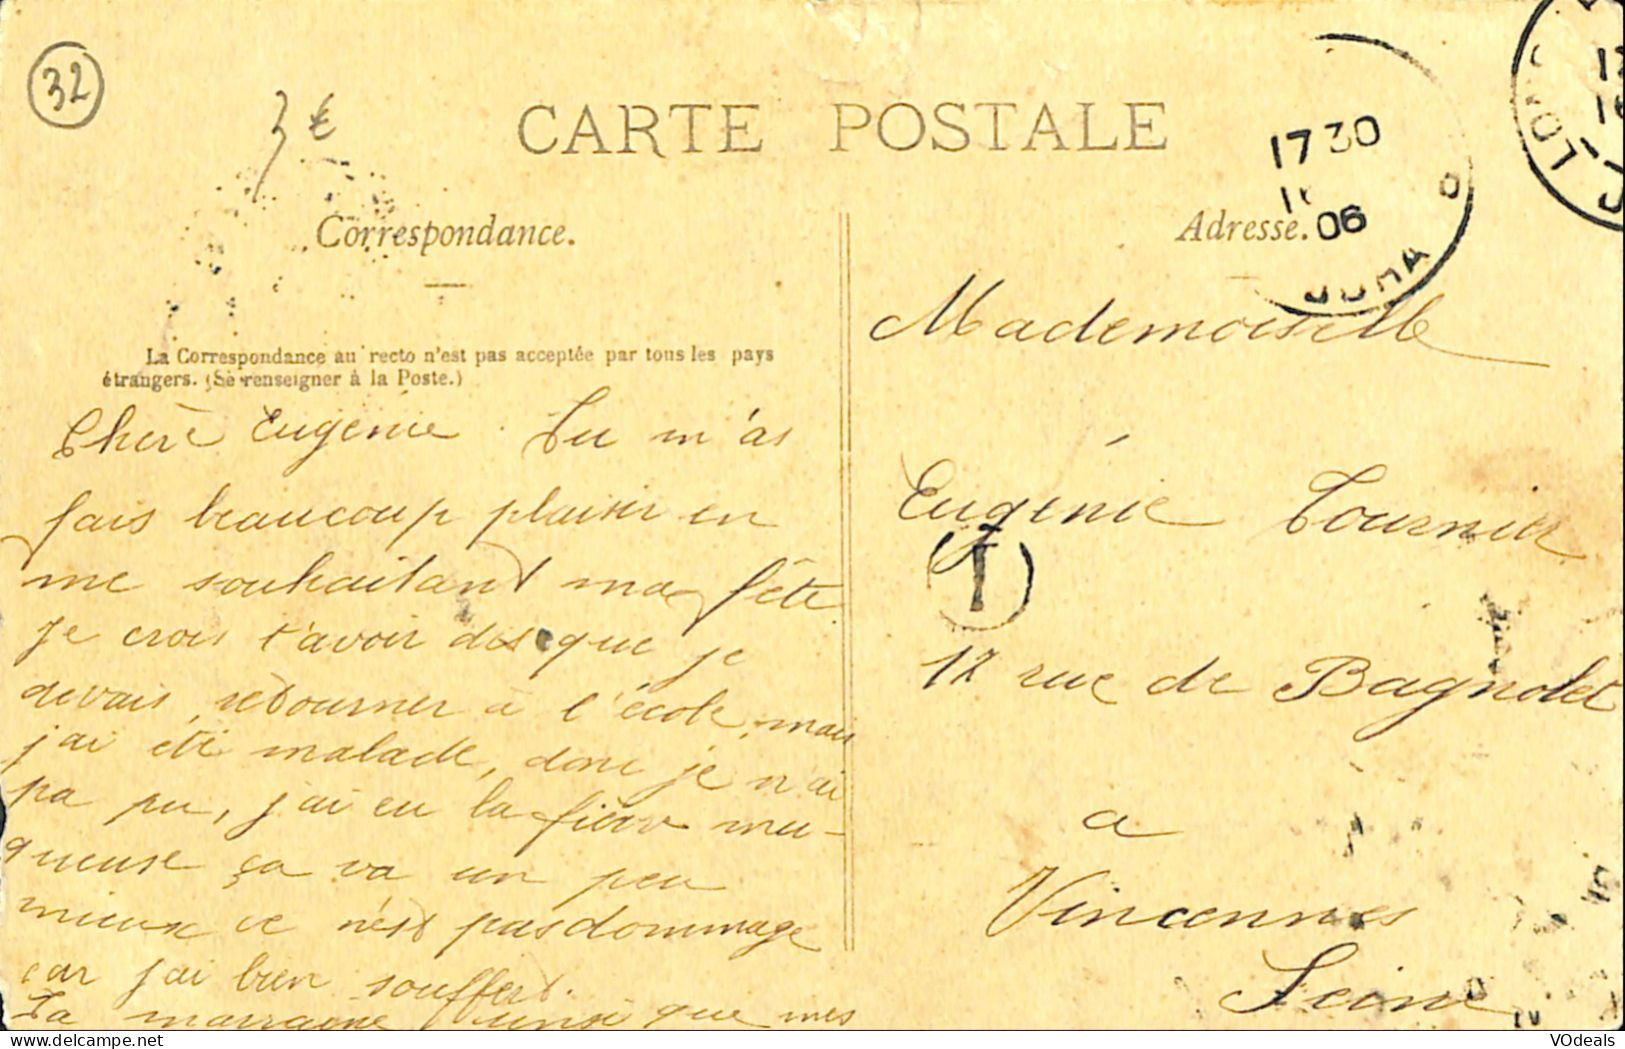 32
3 €
CARTE POSTALE
17 30
06
JURA
Correspondance.
Adresse.
La Correspondance au recto n'est pas acceptée par tous les pays
étrangers. (Se renseigner à la Poste.)
Chère Eugénie. Tu m'as
fais beaucoup plaisir en
me souhaitant ma fête
Je crois t'avoir dis que je
devais retourner à l'école, mais
j'ai été malade, donc je n'ai
pa pu, j'ai eu la fièvre mu-
queuse ça va un peu
mieux ce n'est pas dommage
car j'ai bien souffert.
Ta marraine que mes
Mademoiselle
Eugénie Tournier
T
12 rue de Bagnolet
a
Vincennes
Seine
VOdeals